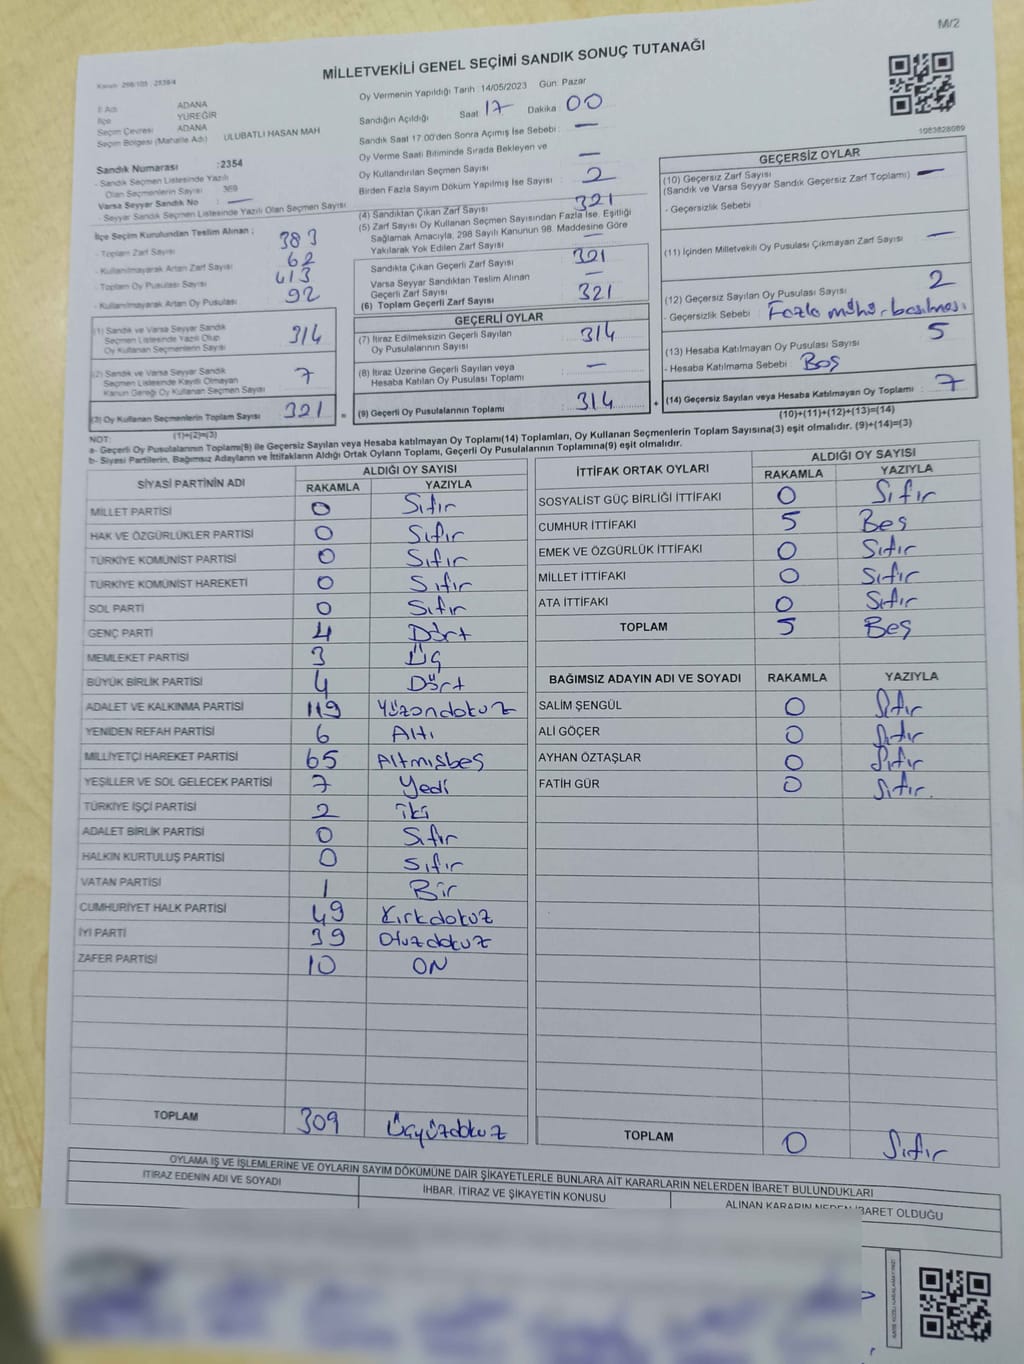 M/2
MİLLETVEKİLİ GENEL SEÇİMİ SANDIK SONUÇ TUTANAĞI
İl Adı ADANA
İlçe YÜREĞİR
Seçim Çevresi ADANA
Seçim Bölgesi (Mahalle Adı) ULUBATLI HASAN MAH
Sandık Numarası :2354
- Sandık Seçmen Listesinde Yazılı
Olan Seçmenlerin Sayısı 369
Varsa Seyyar Sandık No —
- Seyyar Sandık Seçmen Listesinde Yazılı Olan Seçmen Sayısı
İlçe Seçim Kurulundan Teslim Alınan ;
- Toplam Zarf Sayısı 383
- Kullanılmayarak Artan Zarf Sayısı 62
- Toplam Oy Pusulası Sayısı 413
- Kullanılmayarak Artan Oy Pusulası 92
(1) Sandık ve Varsa Seyyar Sandık
Seçmen Listesinde Yazılı Olup
Oy Kullanan Seçmenlerin Sayısı 314
(2) Sandık ve Varsa Seyyar Sandık
Seçmen Listesinde Kayıtlı Olmayan
Kanun Gereği Oy Kullanan Seçmen Sayısı 7
(3) Oy Kullanan Seçmenlerin Toplam Sayısı 321
(1)+(2)=(3)
Oy Vermenin Yapıldığı Tarih :14/05/2023 Gün: Pazar
Sandığın Açıldığı Saat 17 Dakika 00
Sandık Saat 17:00'den Sonra Açımış İse Sebebi : —
Oy Verme Saati Bitiminde Sırada Bekleyen ve
Oy Kullandırılan Seçmen Sayısı —
Birden Fazla Sayım Döküm Yapılmış İse Sayısı : 2
(4) Sandıktan Çıkan Zarf Sayısı 321
(5) Zarf Sayısı Oy Kullanan Seçmen Sayısından Fazla İse, Eşitliği
Sağlamak Amacıyla, 298 Sayılı Kanunun 98. Maddesine Göre
Yakılarak Yok Edilen Zarf Sayısı —
Sandıkta Çıkan Geçerli Zarf Sayısı 321
Varsa Seyyar Sandıktan Teslim Alınan
Geçerli Zarf Sayısı —
(6) Toplam Geçerli Zarf Sayısı 321
GEÇERLİ OYLAR
(7) İtiraz Edilmeksizin Geçerli Sayılan
Oy Pusulalarının Sayısı 314
(8) İtiraz Üzerine Geçerli Sayılan veya
Hesaba Katılan Oy Pusulası Toplamı —
= (9) Geçerli Oy Pusulalarının Toplamı : 314 +
1083828069
GEÇERSİZ OYLAR
(10) Geçersiz Zarf Sayısı —
(Sandık ve Varsa Seyyar Sandık Geçersiz Zarf Toplamı)
- Geçersizlik Sebebi
(11) İçinden Milletvekili Oy Pusulası Çıkmayan Zarf Sayısı —
(12) Geçersiz Sayılan Oy Pusulası Sayısı 2
- Geçersizlik Sebebi : Fazla mühür basılması
(13) Hesaba Katılmayan Oy Pusulası Sayısı 5
- Hesaba Katılmama Sebebi : Boş
(14) Geçersiz Sayılan veya Hesaba Katılmayan Oy Toplamı : 7
(10)+(11)+(12)+(13)=(14)
NOT:
a- Geçerli Oy Pusulalarının Toplamı(9) ile Geçersiz Sayılan veya Hesaba katılmayan Oy Toplamı(14) Toplamları, Oy Kullanan Seçmenlerin Toplam Sayısına(3) eşit olmalıdır. (9)+(14)=(3)
b- Siyasi Partilerin, Bağımsız Adayların ve İttifakların Aldığı Ortak Oyların Toplamı, Geçerli Oy Pusulalarının Toplamına(9) eşit olmalıdır.
SİYASİ PARTİNİN ADI ALDIĞI OY SAYISI
RAKAMLA YAZIYLA
MİLLET PARTİSİ 0 Sıfır
HAK VE ÖZGÜRLÜKLER PARTİSİ 0 Sıfır
TÜRKİYE KOMÜNİST PARTİSİ 0 Sıfır
TÜRKİYE KOMÜNİST HAREKETİ 0 Sıfır
SOL PARTİ 0 Sıfır
GENÇ PARTİ 4 Dört
MEMLEKET PARTİSİ 3 Üç
BÜYÜK BİRLİK PARTİSİ 4 Dört
ADALET VE KALKINMA PARTİSİ 119 Yüzondokuz
YENİDEN REFAH PARTİSİ 6 Altı
MİLLİYETÇİ HAREKET PARTİSİ 65 Altmışbeş
YEŞİLLER VE SOL GELECEK PARTİSİ 7 Yedi
TÜRKİYE İŞÇİ PARTİSİ 2 iki
ADALET BİRLİK PARTİSİ 0 Sıfır
HALKIN KURTULUŞ PARTİSİ 0 Sıfır
VATAN PARTİSİ 1 Bir
CUMHURİYET HALK PARTİSİ 49 Kırkdokuz
İYİ PARTİ 39 Otuzdokuz
ZAFER PARTİSİ 10 ON
TOPLAM 309 Üçyüzdokuz
İTTİFAK ORTAK OYLARI ALDIĞI OY SAYISI
RAKAMLA YAZIYLA
SOSYALİST GÜÇ BİRLİĞİ İTTİFAKI 0 Sıfır
CUMHUR İTTİFAKI 5 Beş
EMEK VE ÖZGÜRLÜK İTTİFAKI 0 Sıfır
MİLLET İTTİFAKI 0 Sıfır
ATA İTTİFAKI 0 Sıfır
TOPLAM 5 Beş
BAĞIMSIZ ADAYIN ADI VE SOYADI RAKAMLA YAZIYLA
SALİM ŞENGÜL 0 Sıfır
ALİ GÖÇER 0 Sıfır
AYHAN ÖZTAŞLAR 0 Sıfır
FATİH GÜR 0 Sıfır.
TOPLAM 0 Sıfır
OYLAMA İŞ VE İŞLEMLERİNE VE OYLARIN SAYIM DÖKÜMÜNE DAİR ŞİKAYETLERLE BUNLARA AİT KARARLARIN NELERDEN İBARET BULUNDUKLARI
İTİRAZ EDENİN ADI VE SOYADI İHBAR, İTİRAZ VE ŞİKAYETİN KONUSU ALINAN KARARIN NEDEN İBARET OLDUĞU